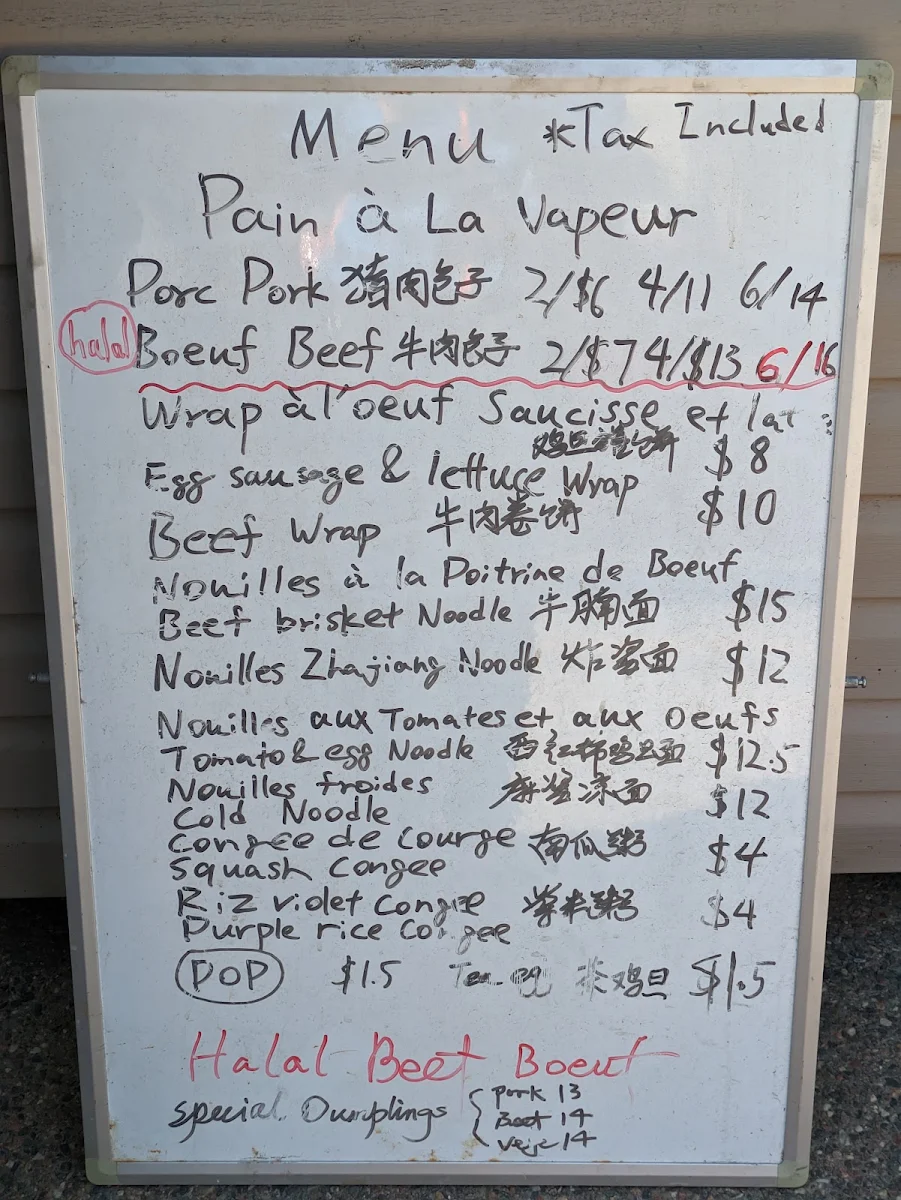 Menu *Tax Included
Pain à La Vapeur
Porc Pork 猪肉包子 2/$6 4/11 6/14
halal Boeuf Beef 牛肉包子 2/$7 4/$13 6/16
Wrap à l'oeuf Saucisse et
鸡旦 $8
Egg sausage & lettuce Wrap
Beef Wrap 牛肉卷饼 $10
Nouilles à la Poitrine de Boeuf
Beef brisket Noodle 牛腩面 $15
Nouilles Zhajiang Noodle 炸酱面 $12
Nouilles aux Tomates et aux Oeufs
Tomato & egg Noodle 西红柿鸡旦面 $12.5
Nouilles froides 麻酱凉面 $12
Cold Noodle
Congee de courge 南瓜粥 $4
Squash Congee
Riz violet Congee 紫米粥 $4
Purple rice Congee
POP $1.5 Tea egg 茶鸡旦 $1.5
Halal Beef Boeuf
Special Dumplings { Pork 13
Beef 14
Vege 14